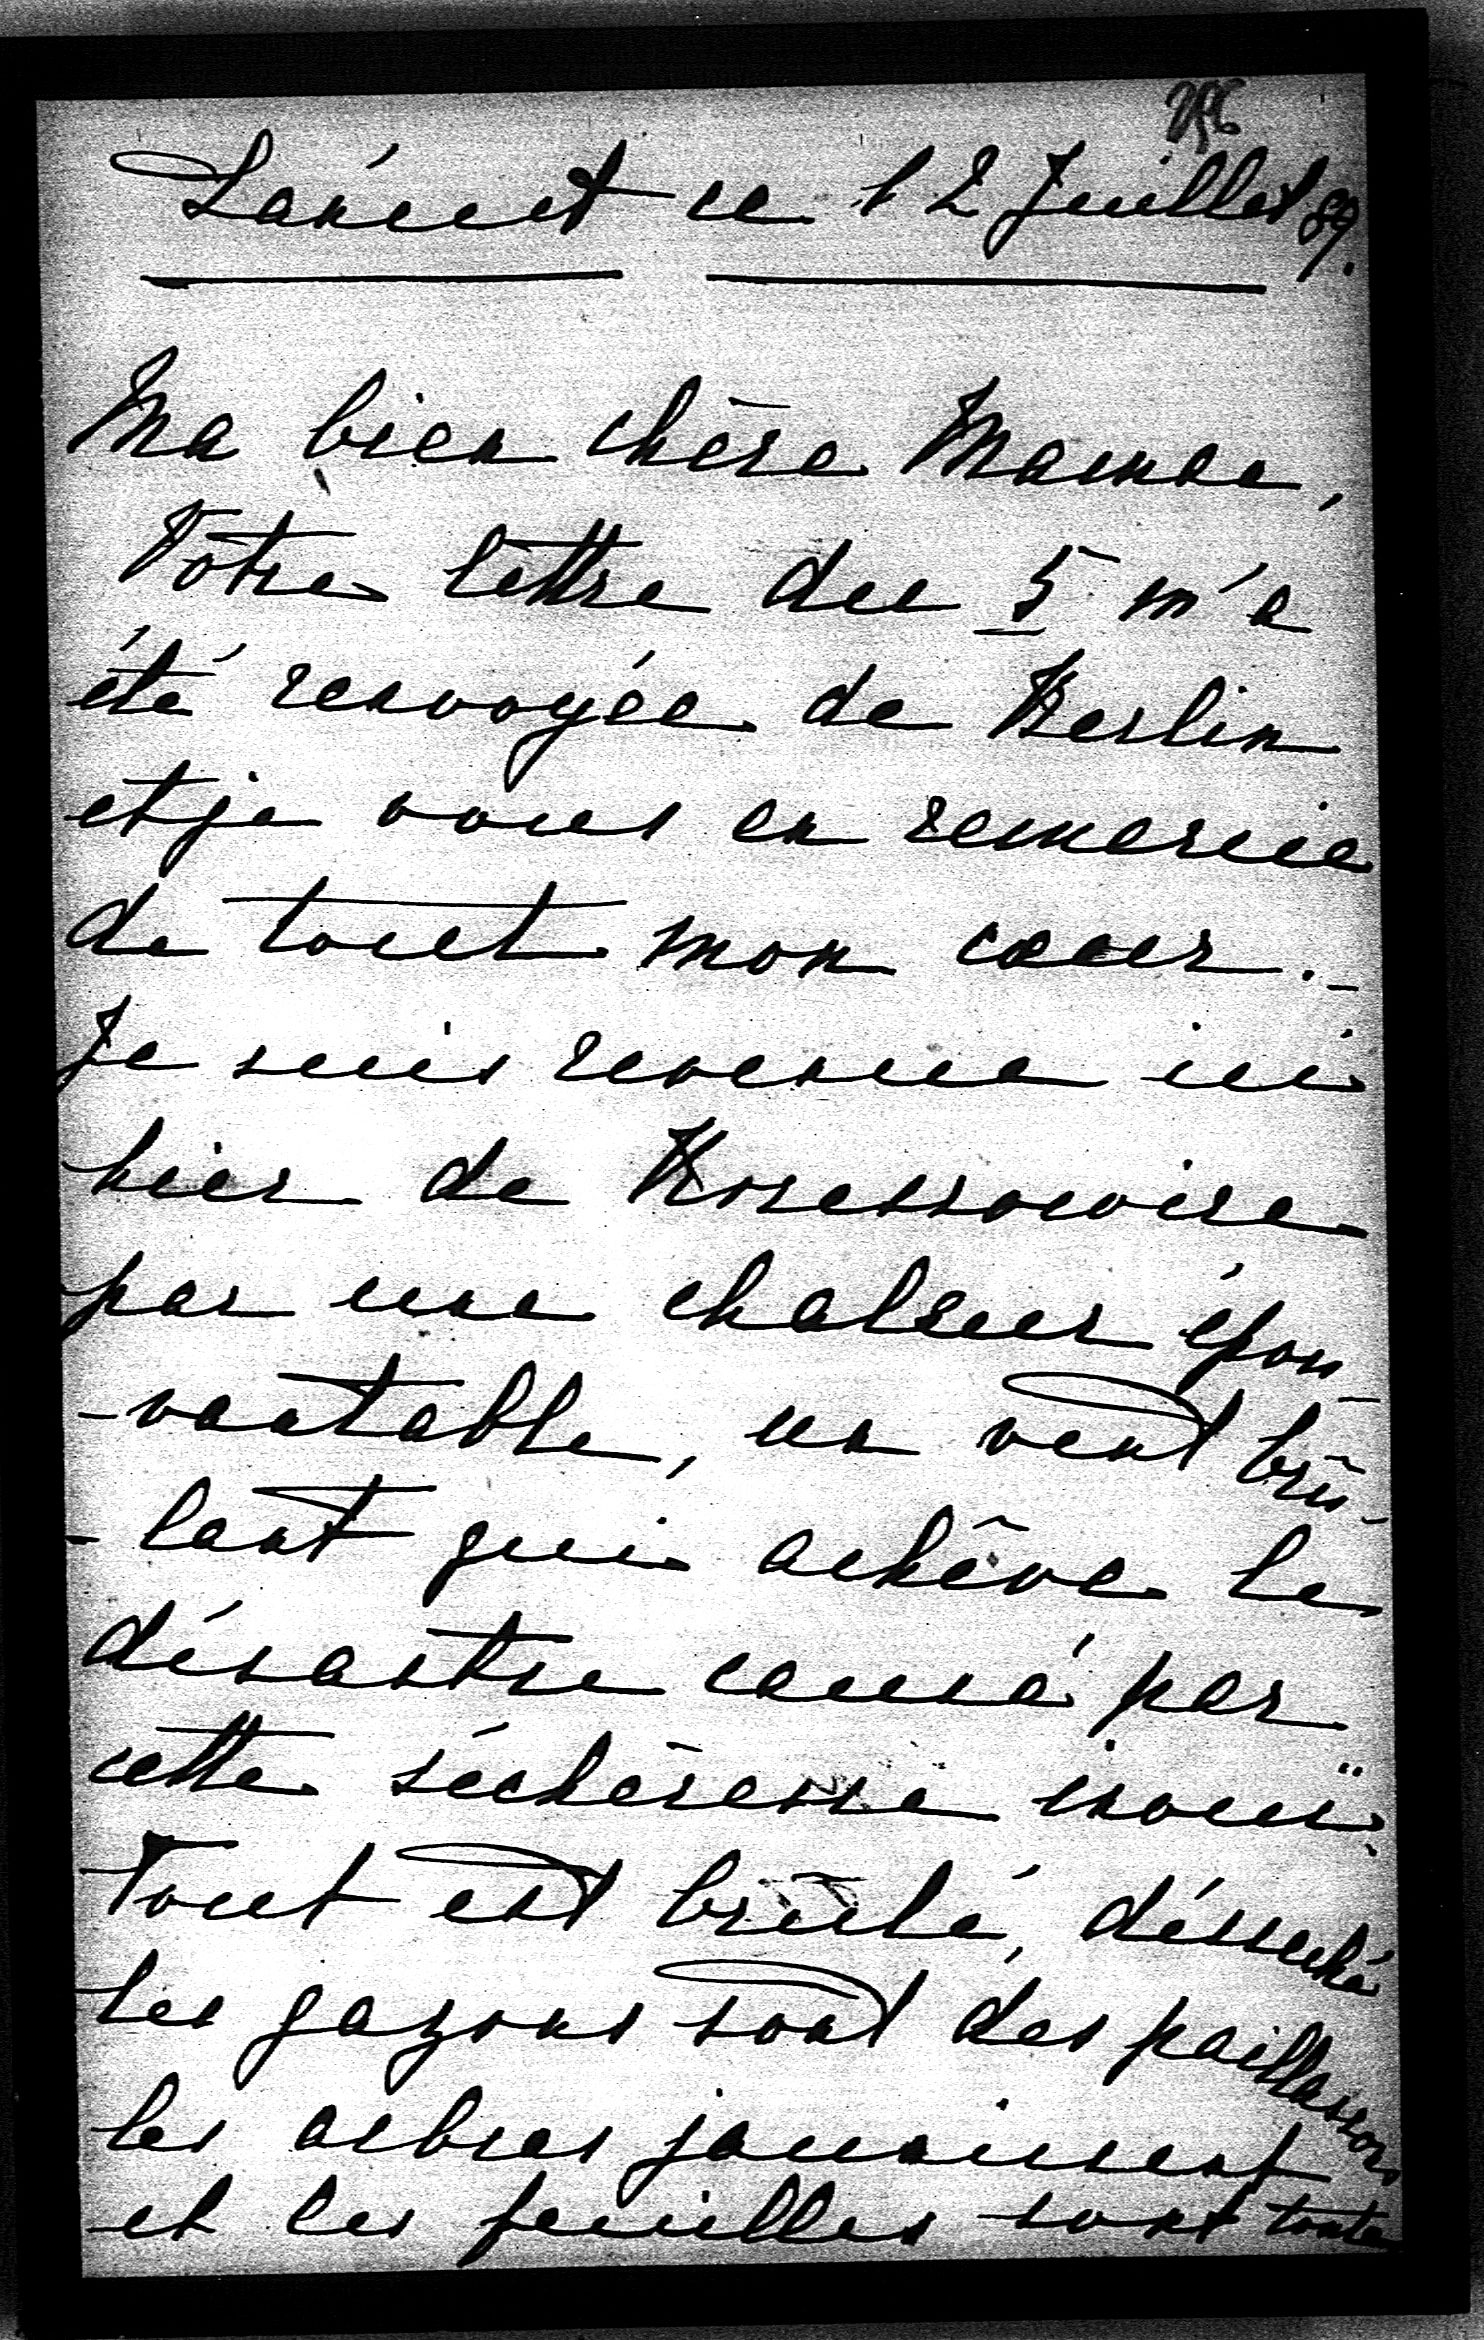 Lancut ce 12 Juillet 89.
Ma bien chère Maman,
Votre lettre du 5 m'a
été renvoyée de Berlin
et je vous en remercie
de tout mon coeur. _
Je suis revenue ici
hier de
par une chaleur épou
-vantable, un vent brû-
-lant qui achève le
désastre causé par
cette sécheresse inouïe.
Tout est brûlé, desséché
les gazons sont des paillassons
les arbres jaunissent
et les feuilles sont toute